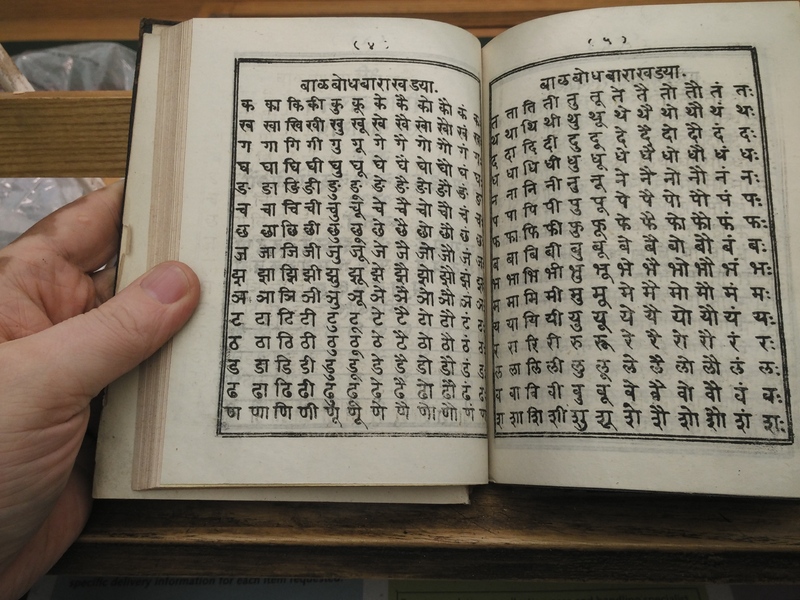 ( ४ )
बाळबोधबाराखड्या.
क का कि की कु कू के कै को कौ कं
ख खा खि खी खु खू खे खै खो खौ खं
ग गा गि गी गु गू गे गै गो गौ गं
घ घा घि घी घु घू घे घै घो घौ घं
ङ ङा ङि ङी ङु ङू ङे ङै ङो ङौ ङं
च चा चि ची चु चू चे चै चो चौ चं
छ छा छि छी छु छू छे छै छो छौ छं
ज जा जि जी जु जू जे जै जो जौ जं
झ झा झि झी झु झू झे झै झो झौ झं
ञ ञा ञि ञी ञु ञू ञे ञै ञो ञौ ञं
ट टा टि टी टु टू टे टै टो टौ टं
ठ ठा ठि ठी ठु ठू ठे ठै ठो ठौ ठं
ड डा डि डी डु डू डे डै डो डौ डं
ढ ढा ढि ढी ढु ढू ढे ढै ढो ढौ ढं
ण णा णि णी णु णू णे णै णो णौ णं
( ५ )
बाळबोधबाराखड्या.
त ता ति ती तु तू ते तै तो तौ तं तः
थ था थि थी थु थू थे थै थो थौ थं थः
द दा दि दी दु दू दे दै दो दौ दं दः
ध धा धि धी धु धू धे धै धो धौ धं धः
न ना नि नी नु नू ने नै नो नौ नं नः
प पा पि पी पु पू पे पै पो पौ पं पः
फ फा फि फी फु फू फे फै फो फौ फं फः
ब बा बि बी बु बू बे बै बो बौ बं बः
भ भा भि भी भु भू भे भै भो भौ भं भः
म मा मि मी मु मू मे मै मो मौ मं मः
य या यि यी यु यू ये यै यो यौ यं यः
र रा रि री रु रू रे रै रो रौ रं रः
ल ला लि ली लु लू ले लै लो लौ लं लः
व वा वि वी वु वू वे वै वो वौ वं वः
श शा शि शी शु शू शे शै शो शौ शं शः
specific delivery information for each item requested.